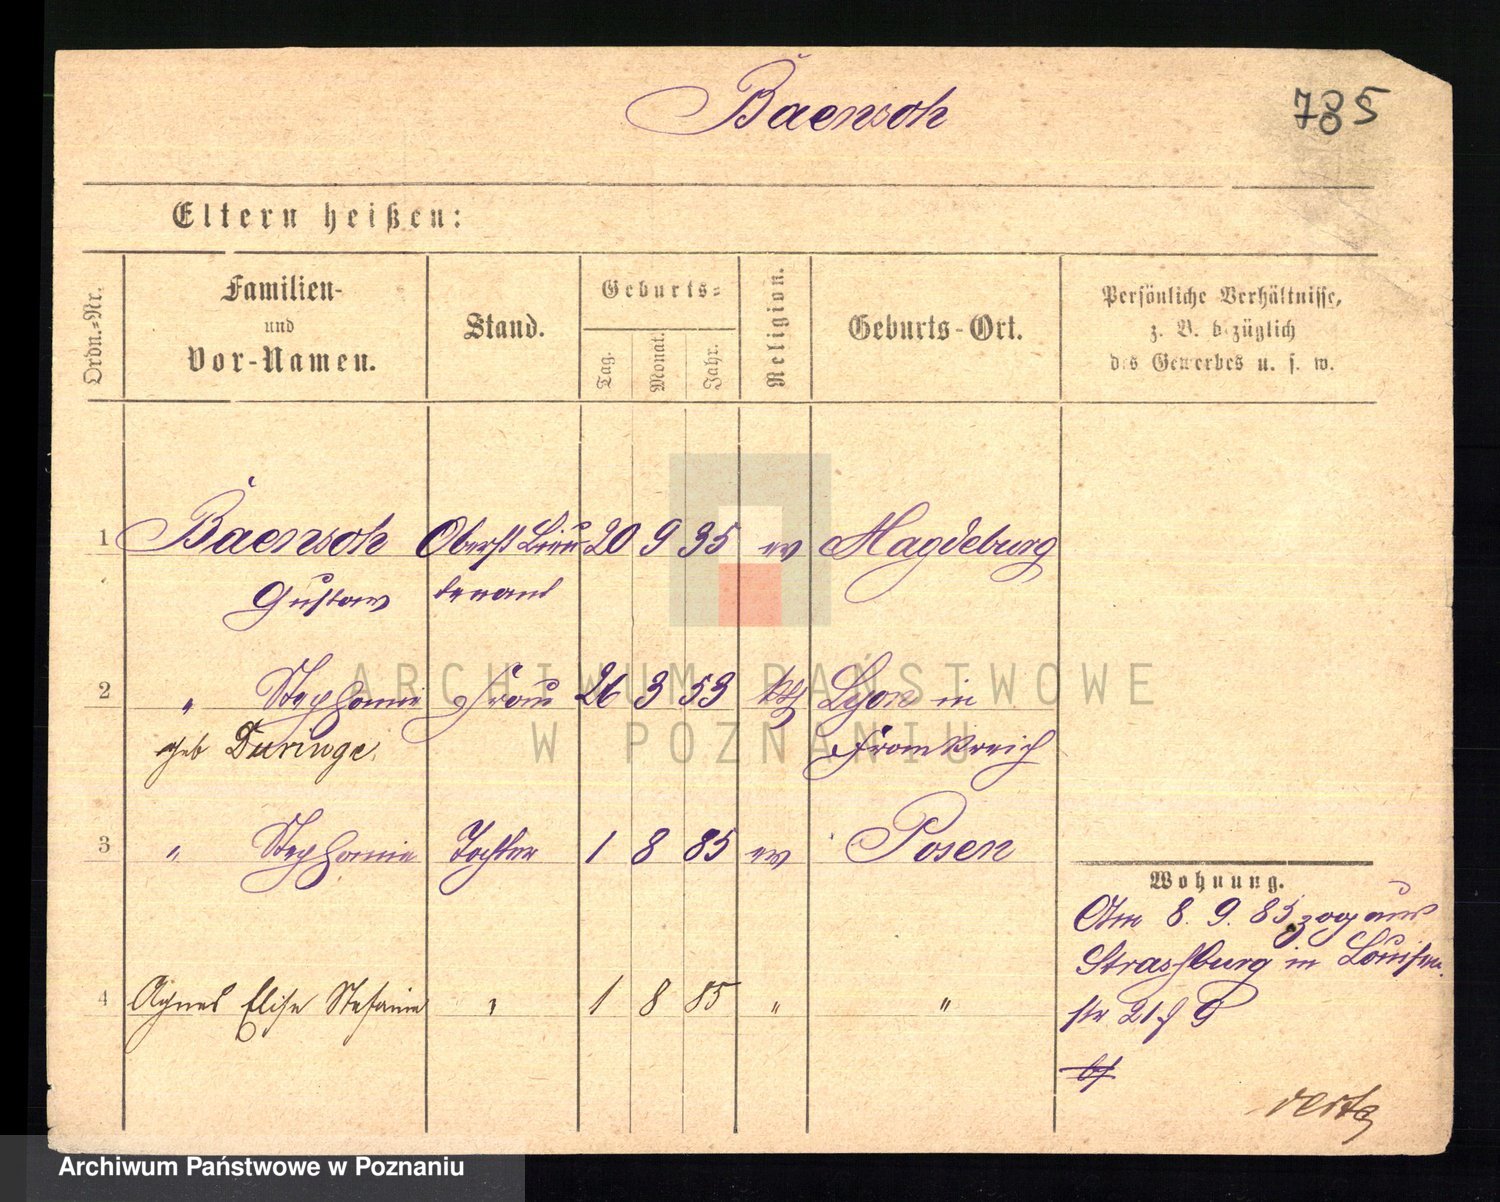 Baensch
785
Eltern heißen:
Ordn.-Nr.
Familien- und Vor-Namen.
Stand.
Geburts-
Tag.
Monat.
Jahr.
Religion.
Geburts-Ort.
Persönliche Verhältnisse,
z. B. bezüglich
des Gewerbes u. s. w.
1 Baensch Oberst Lieu- 20 9 35 ev Magdeburg
Gustav tenant
2 " Stephanie Frau 26 3 53 kth Lyon in
geb Duringe. Frankreich
3 " Stephanie Tochter 1 8 85 ev Posen
Wohnung.
Am 8. 9. 85 zog aus
Strassburg in Louisen
4 Agnes Elise Stefanie " 1 8 85 " "
str 21
verte
ARCHIWUM PAŃSTWOWE
W POZNANIU
Archiwum Państwowe w Poznaniu